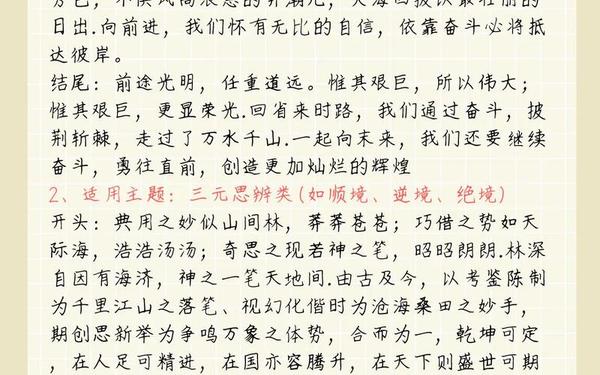 日出.向前进，我们怀有无比的自信，依靠奋斗必将抵
达彼岸。
结尾：前途光明，任重道远。惟其艰巨，所以伟大；
惟其艰巨，更显荣光.回省来时路，我们通过奋斗，披
荆斩棘，走过了万水千山.一起向未来，我们还要继续
奋斗，勇往直前，创造更加灿烂的辉煌
2、适用主题：三元思辨类(如顺境、逆境、绝境)
开头：典用之妙似山间林，莽莽苍苍；巧借之势如天
际海，浩浩汤汤；奇思之现若神之笔，昭昭朗朗.林深
自因有海济，神之一笔天地间.由古及今，以考鉴陈制
为千里江山之落笔、视幻化偕时为沧海桑田之妙手，
期创思新举为争鸣万象之体势，合而为一，乾坤可定
，在人足可精进，在国亦容腾升，在天下则盛世可期